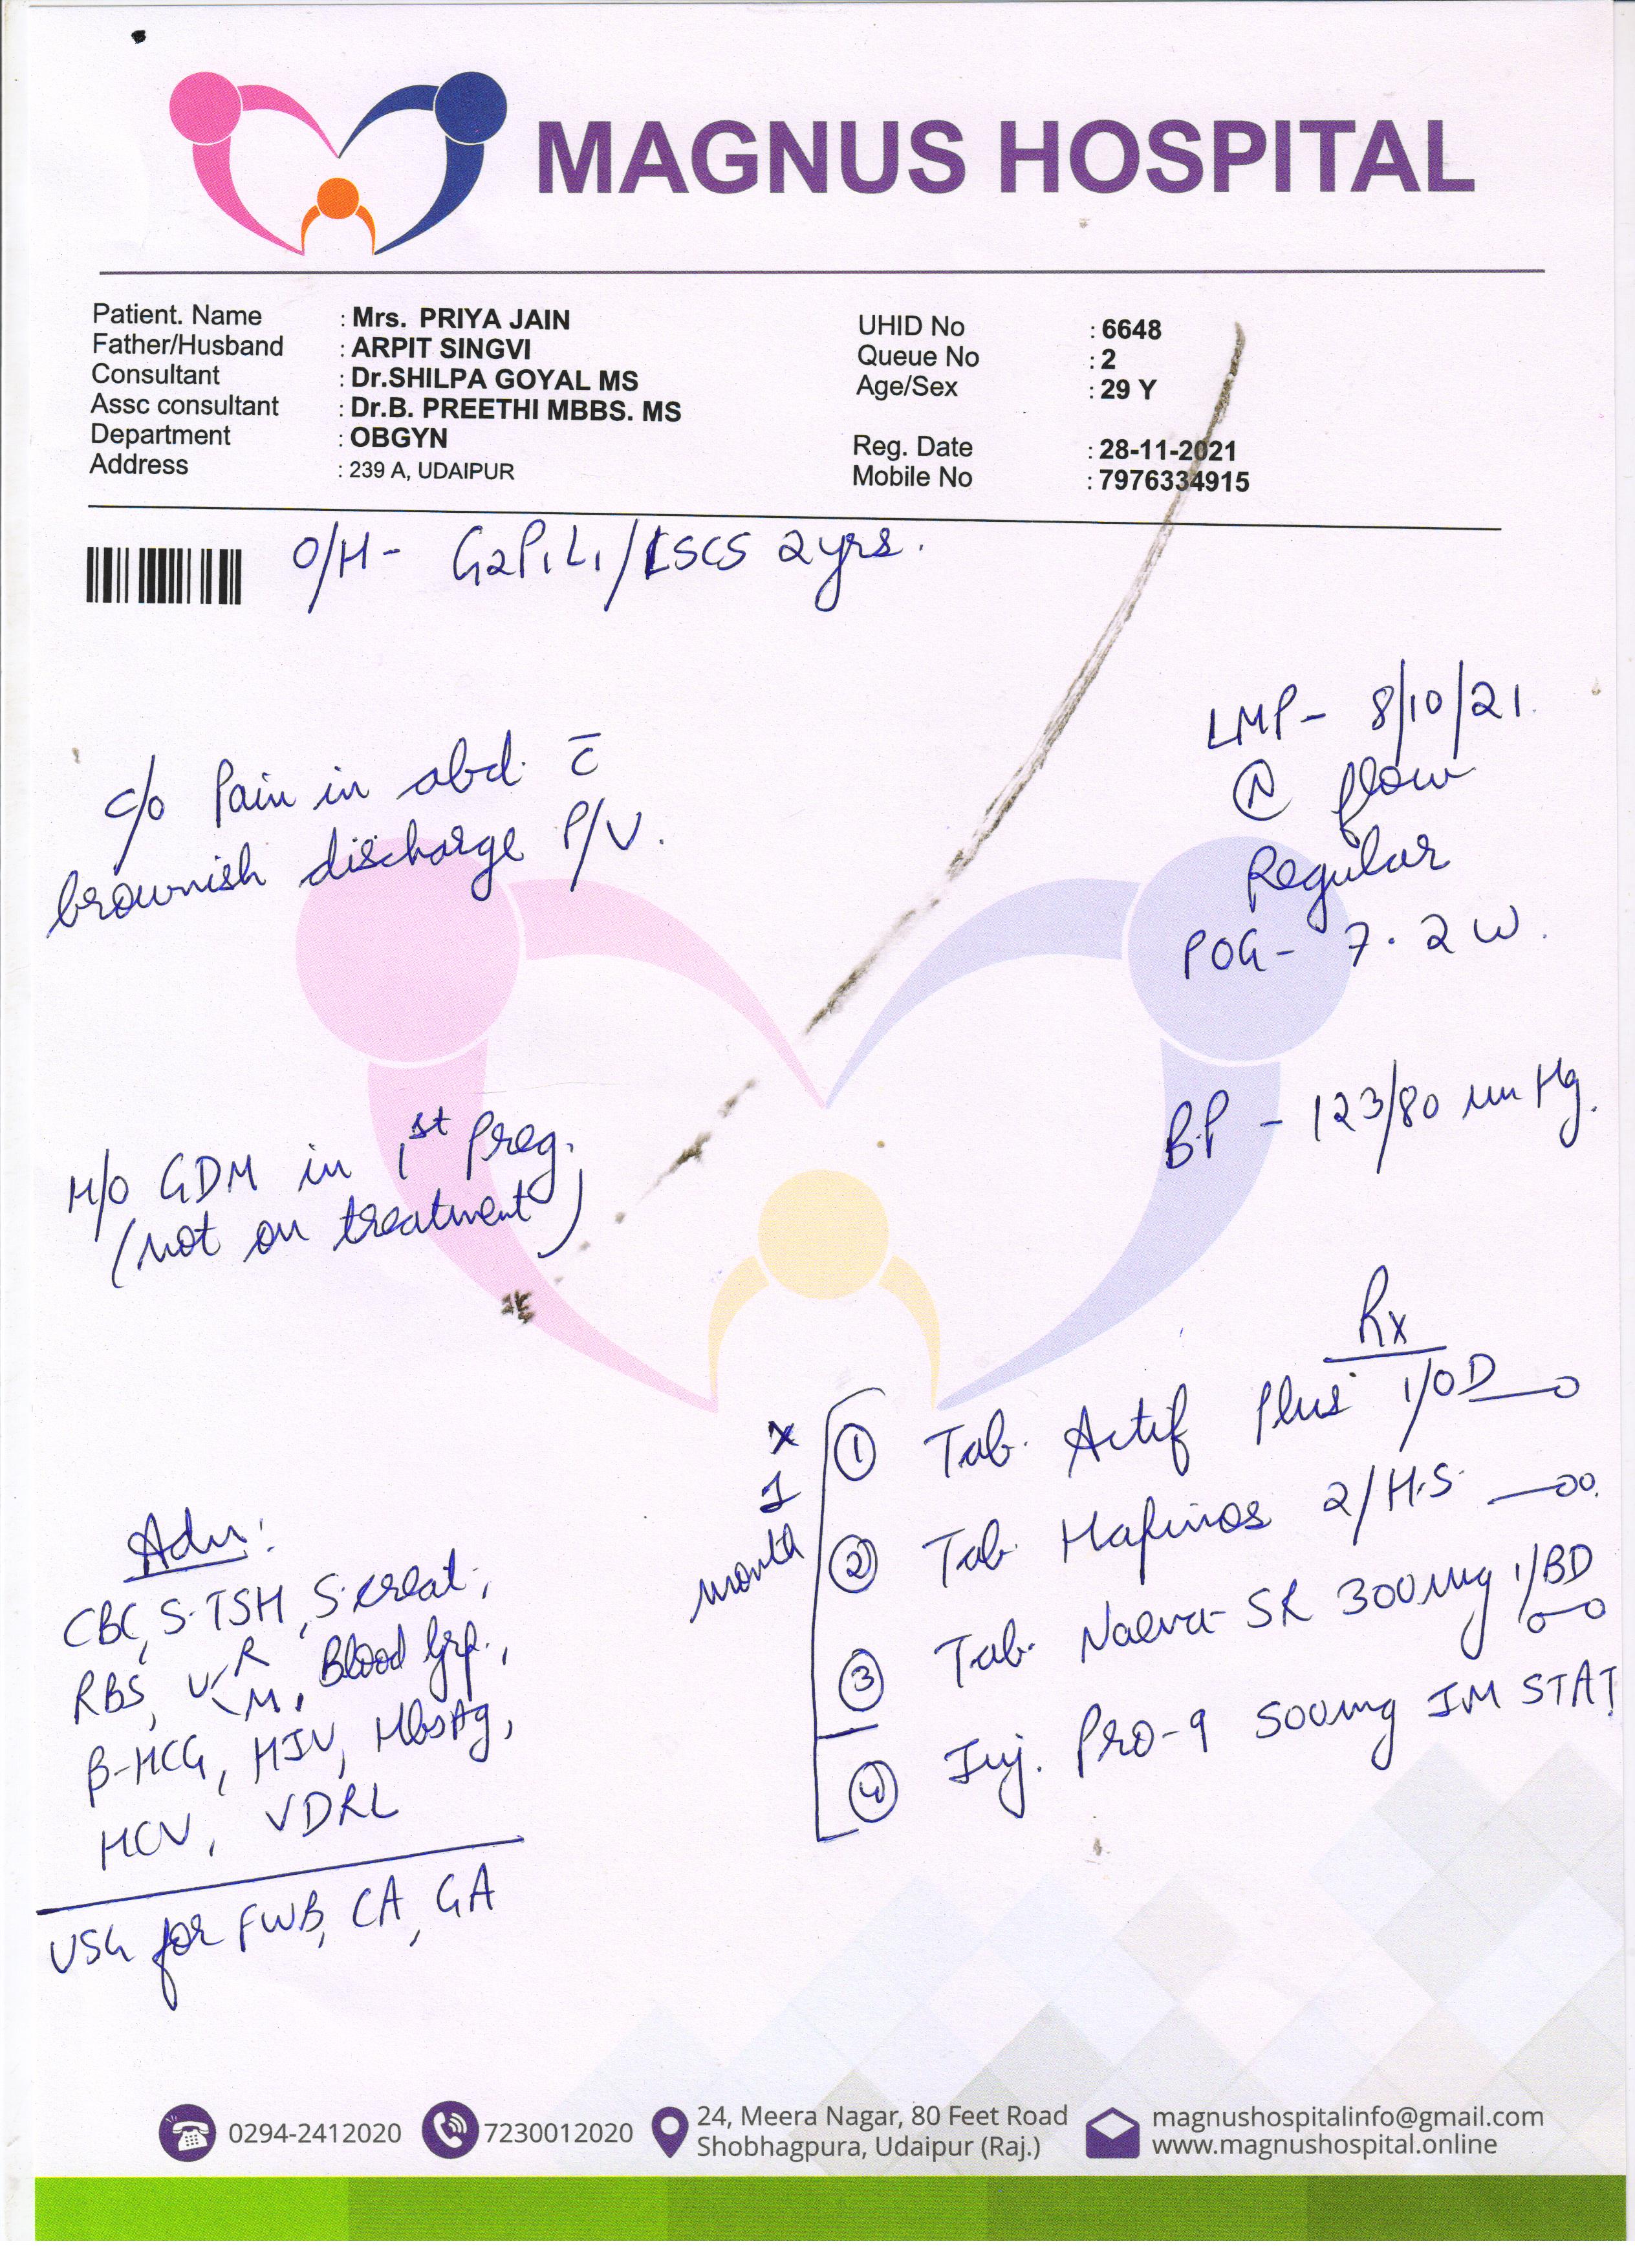 MAGNUS HOSPITAL
Patient. Name : Mrs. PRIYA JAIN
Father/Husband : ARPIT SINGVI
Consultant : Dr.SHILPA GOYAL MS
Assc consultant : Dr.B. PREETHI MBBS. MS
Department : OBGYN
Address : 239 A, UDAIPUR
UHID No : 6648
Queue No : 2
Age/Sex : 29 Y
Reg. Date : 28-11-2021
Mobile No : 7976334915
O/H- G2P1L1/LSCS 2yrs.
LMP- 8/10/21.
(N) flow
Regular
POG- 7.2 W.
c/o Pain in abd. c̄
brownish discharge P/V.
BP - 123/80 mm Hg.
H/O GDM in 1st Preg.
(not on treatment)
Rx
x
1
month
① Tab. Actif Plus 1/OD
② Tab. Hafinos 2/H.S.
③ Tab. SR 300mg 1/BD
④ Inj. Pro-9 500mg IM STAT
Adv:
CBC, S.TSH, S.creat.,
RBS, U R M, Blood Grp.,
β-HCG, HIV, HbsAg,
HCV, VDRL
USG for FWB, CA, GA
0294-2412020
7230012020
24, Meera Nagar, 80 Feet Road
Shobhagpura, Udaipur (Raj.)
magnushospitalinfo@gmail.com
www.magnushospital.online